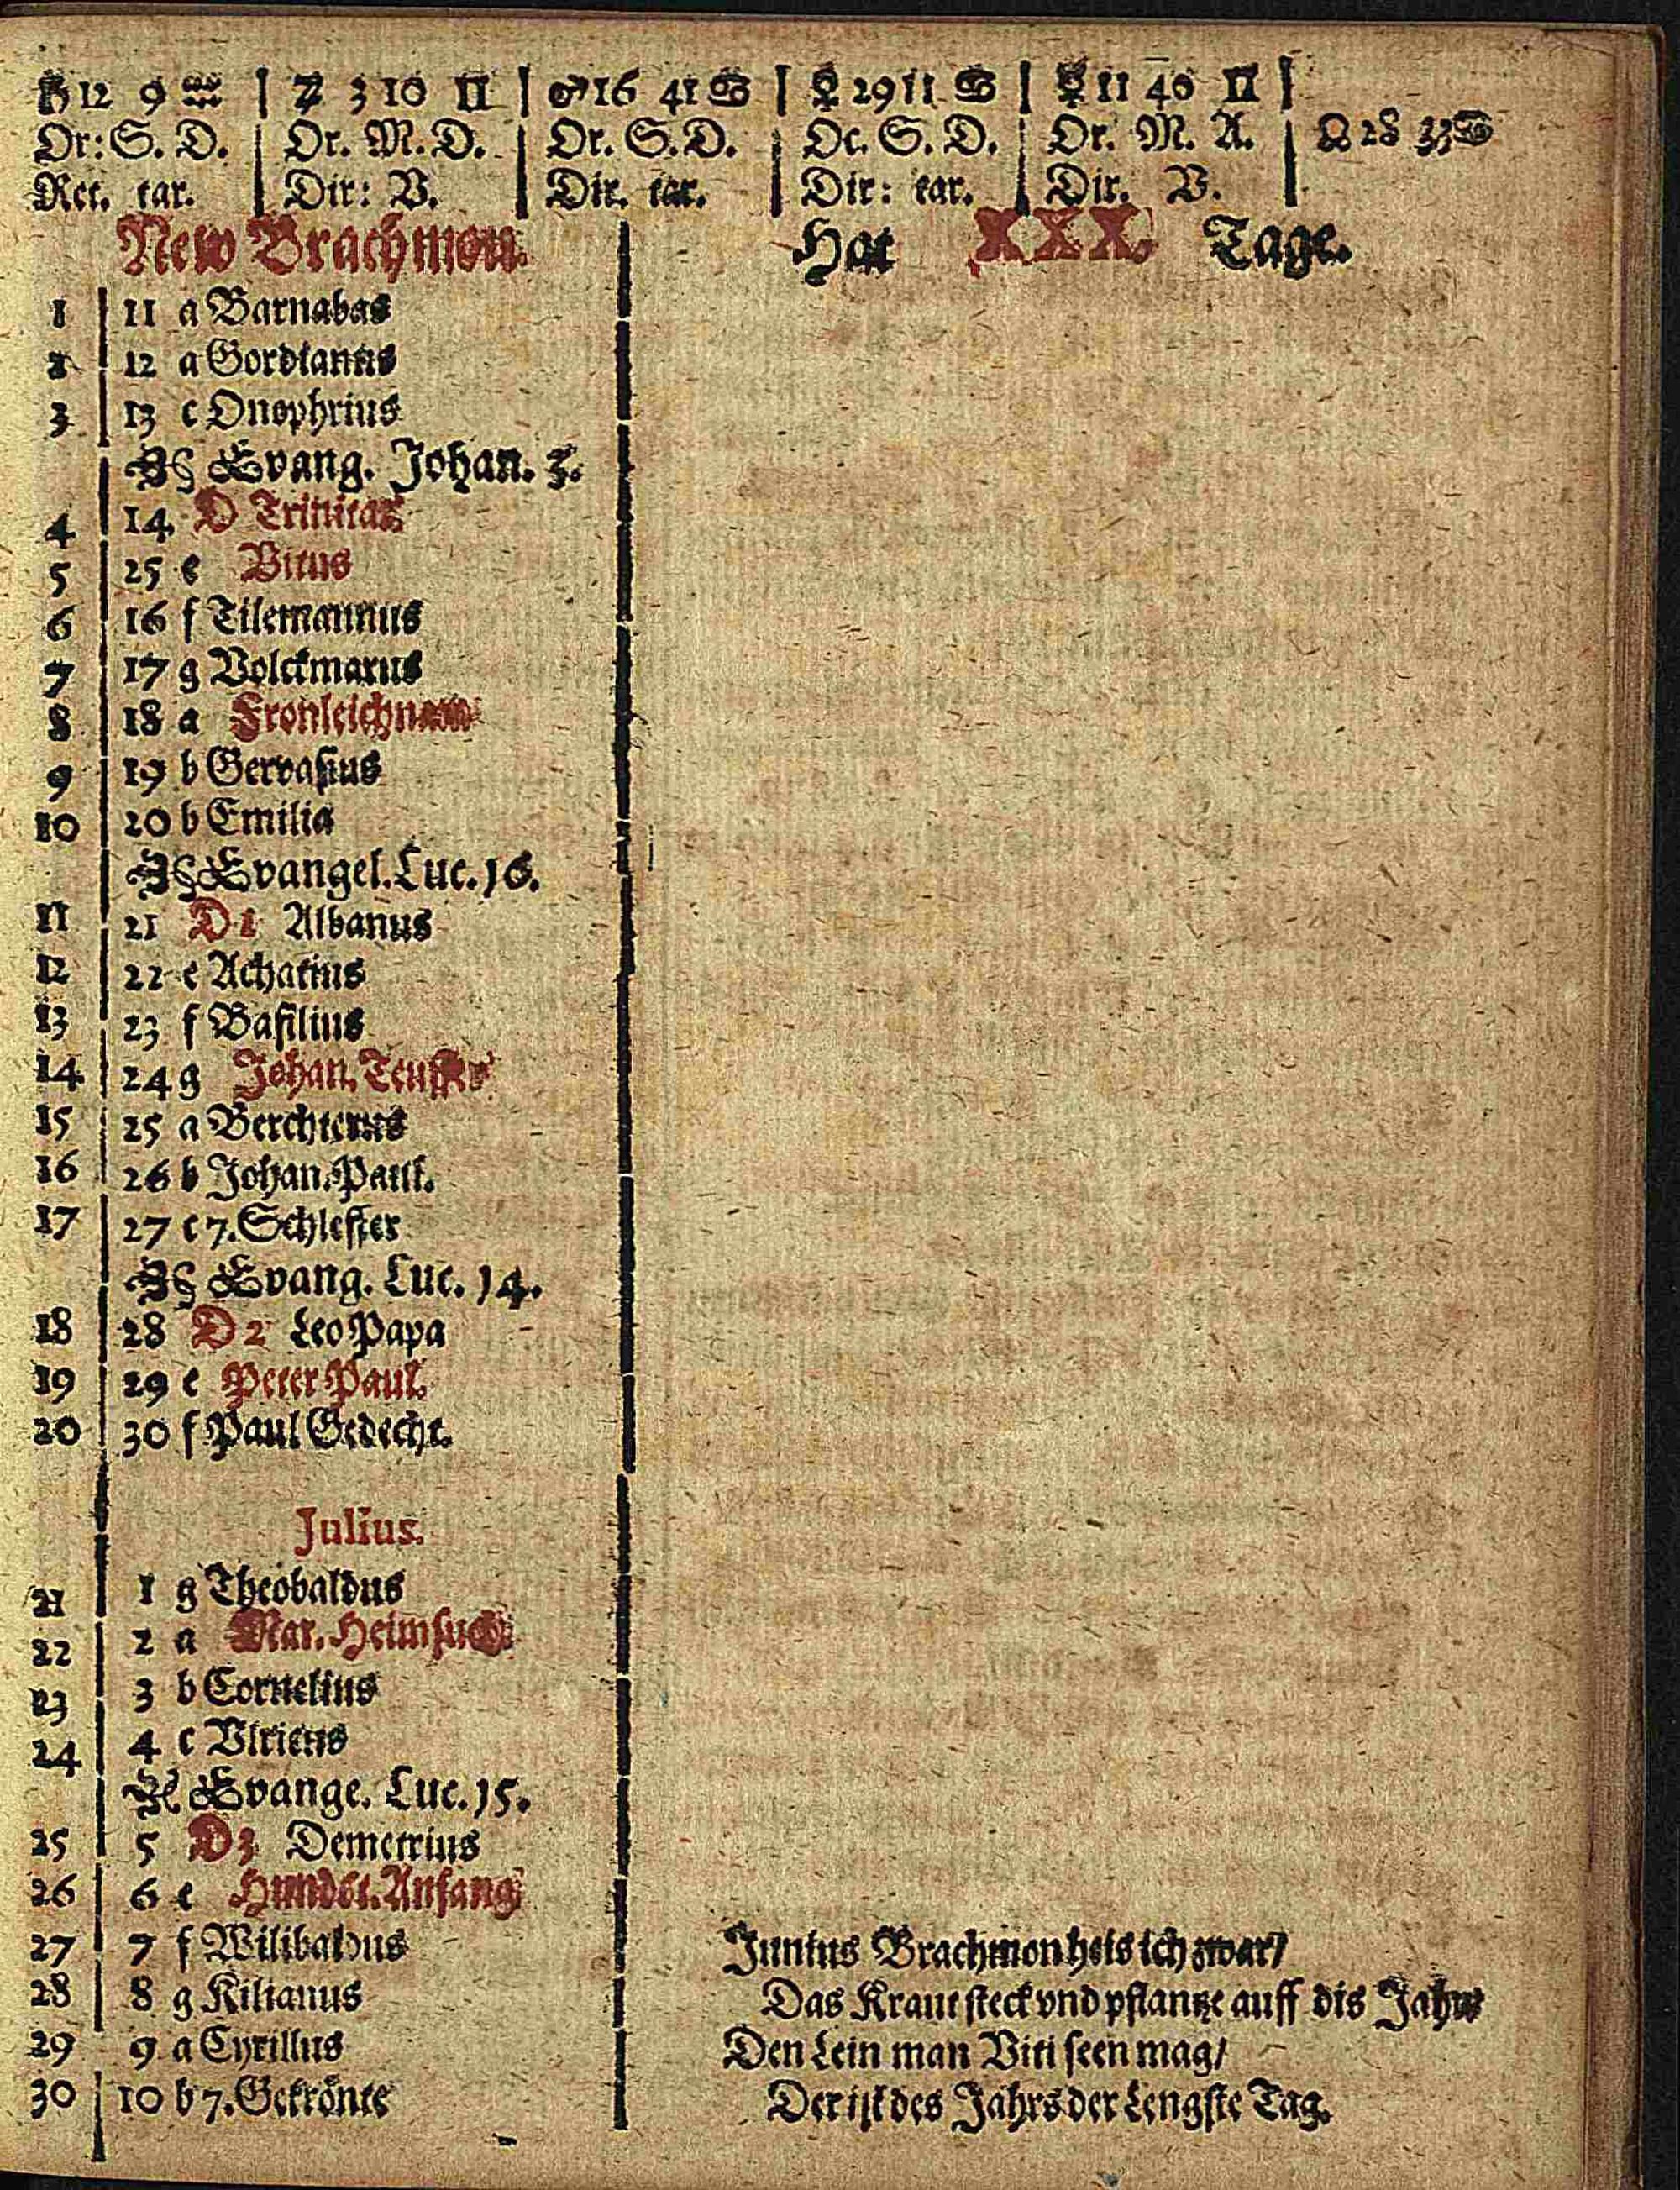 ♄ 12 9 ♒ | ♃ 3 10 ♊ | ♂ 16 41 ♋ | ♀ 29 11 ♋ | ☿ 11 40 ♊ |
Or: S. D. | Or. M. D. | Or. S. D. | Oc. S. D. | Or. M. A. | ☊ 28 33 ♋
Ret. tar. | Dir: V. | Dir. tar. | Dir: tar. | Dir. V. |
New Brachmon. Hat XXX. Tage.
1 11 a Barnabas
2 12 a Gordianus
3 13 c Onophrius
Evang. Johan. 3.
4 14 D Trinitat.
5 25 e Vitus
6 16 f Tilemannus
7 17 g Volckmarus
8 18 a Fronleichnam
9 19 b Gervasius
10 20 b Emilia
Evangel. Luc. 16.
11 21 D 1 Albanus
12 22 e Achatius
13 23 f Basilius
14 24 g Johan. Teuffer
15 25 a Berchterus
16 26 b Johan. Paul.
17 27 c 7. Schleffer
Evang. Luc. 14.
18 28 D 2 Leo Papa
19 29 e Peter Paul.
20 30 f Paul Gedecht.
Julius.
21 1 g Theobaldus
22 2 a Mar. Heimsuch.
23 3 b Cornelius
24 4 c Vlricus
Evange. Luc. 15.
25 5 D 3 Demetrius
26 6 e Hundst. Anfang
27 7 f Wilibaldus
28 8 g Kilianus
29 9 a Cyrillus
30 10 b 7. Gekrönte
Junius Brachmon heis ich zwar /
Das Kraut steck vnd pflantze auff dis Jahr
Den Lein man Viti seen mag /
Der ist des Jahrs der Lengste Tag.